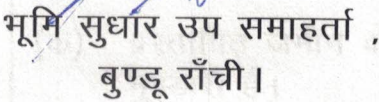 भूमि सुधार उप समाहर्ता ,
बुण्डू राँची।